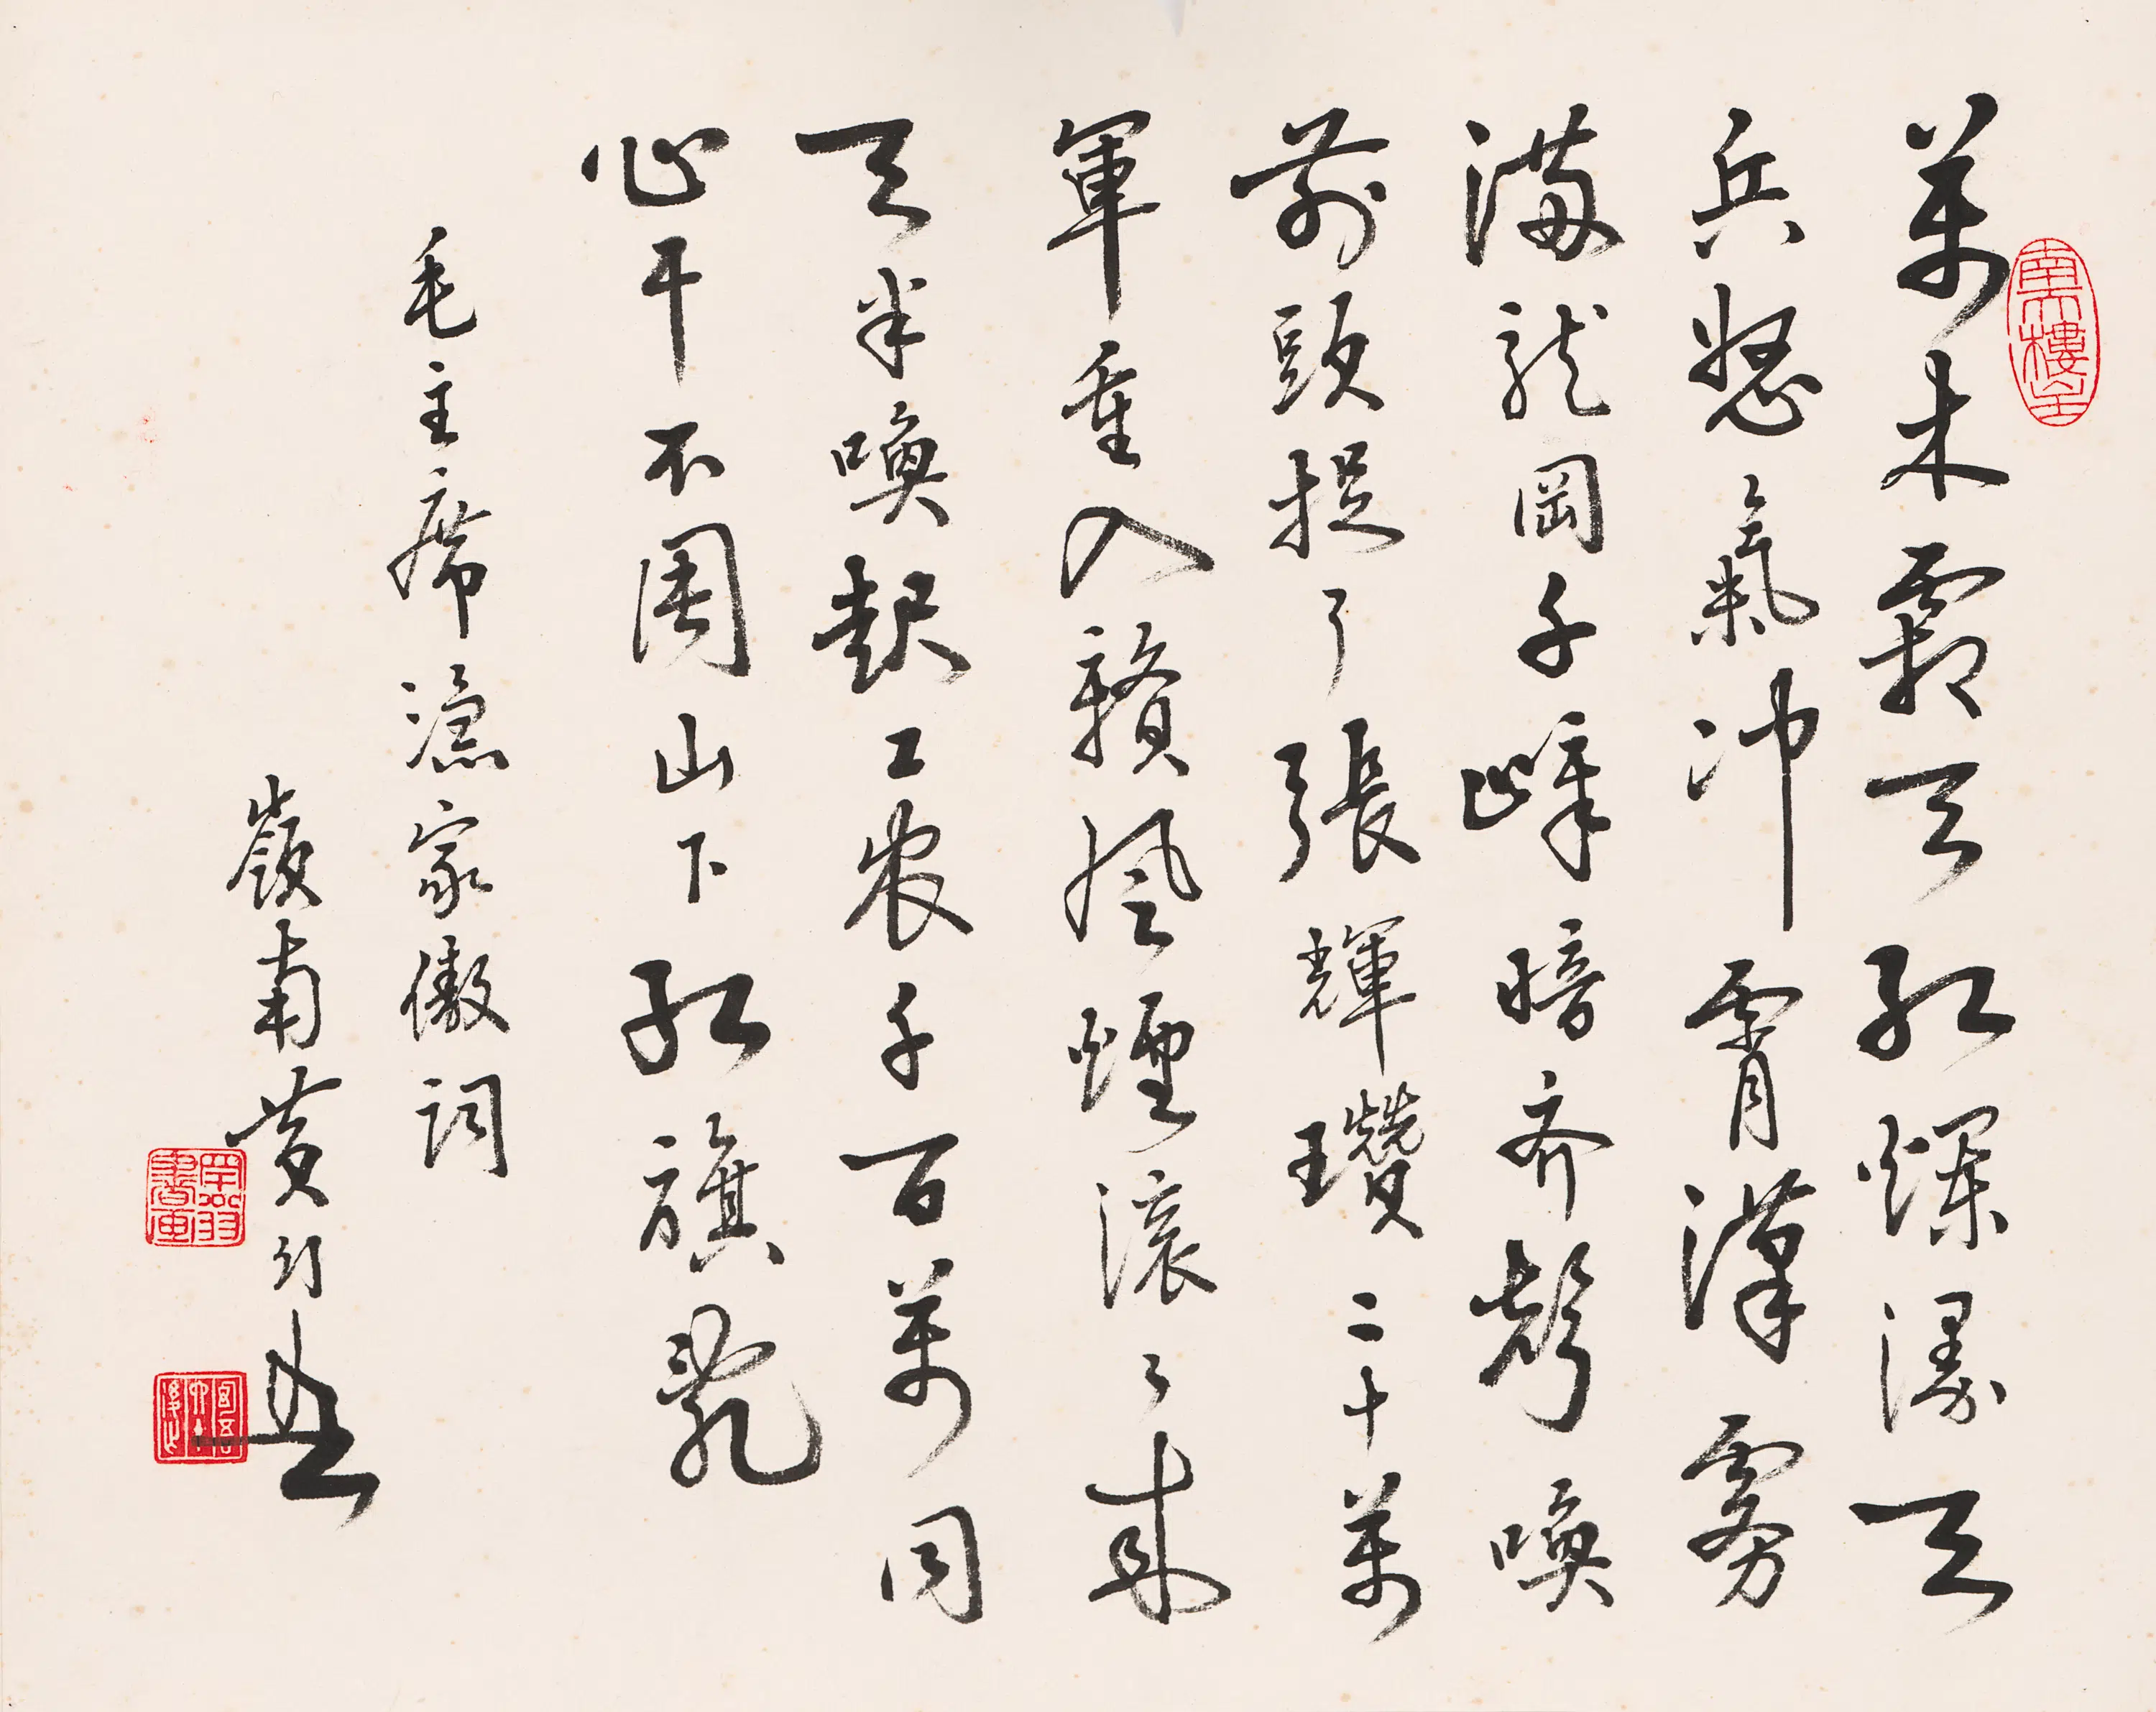 萬木霜天紅爛漫天
兵怒氣沖霄漢霧
滿龍岡千嶂暗齊聲喚
前頭捉了張輝瓚二十萬
軍重入贛風煙滾々來
天半喚起工農千百萬同
心干不周山下紅旗亂
毛主席漁家傲詞
嶺南黃
南樓